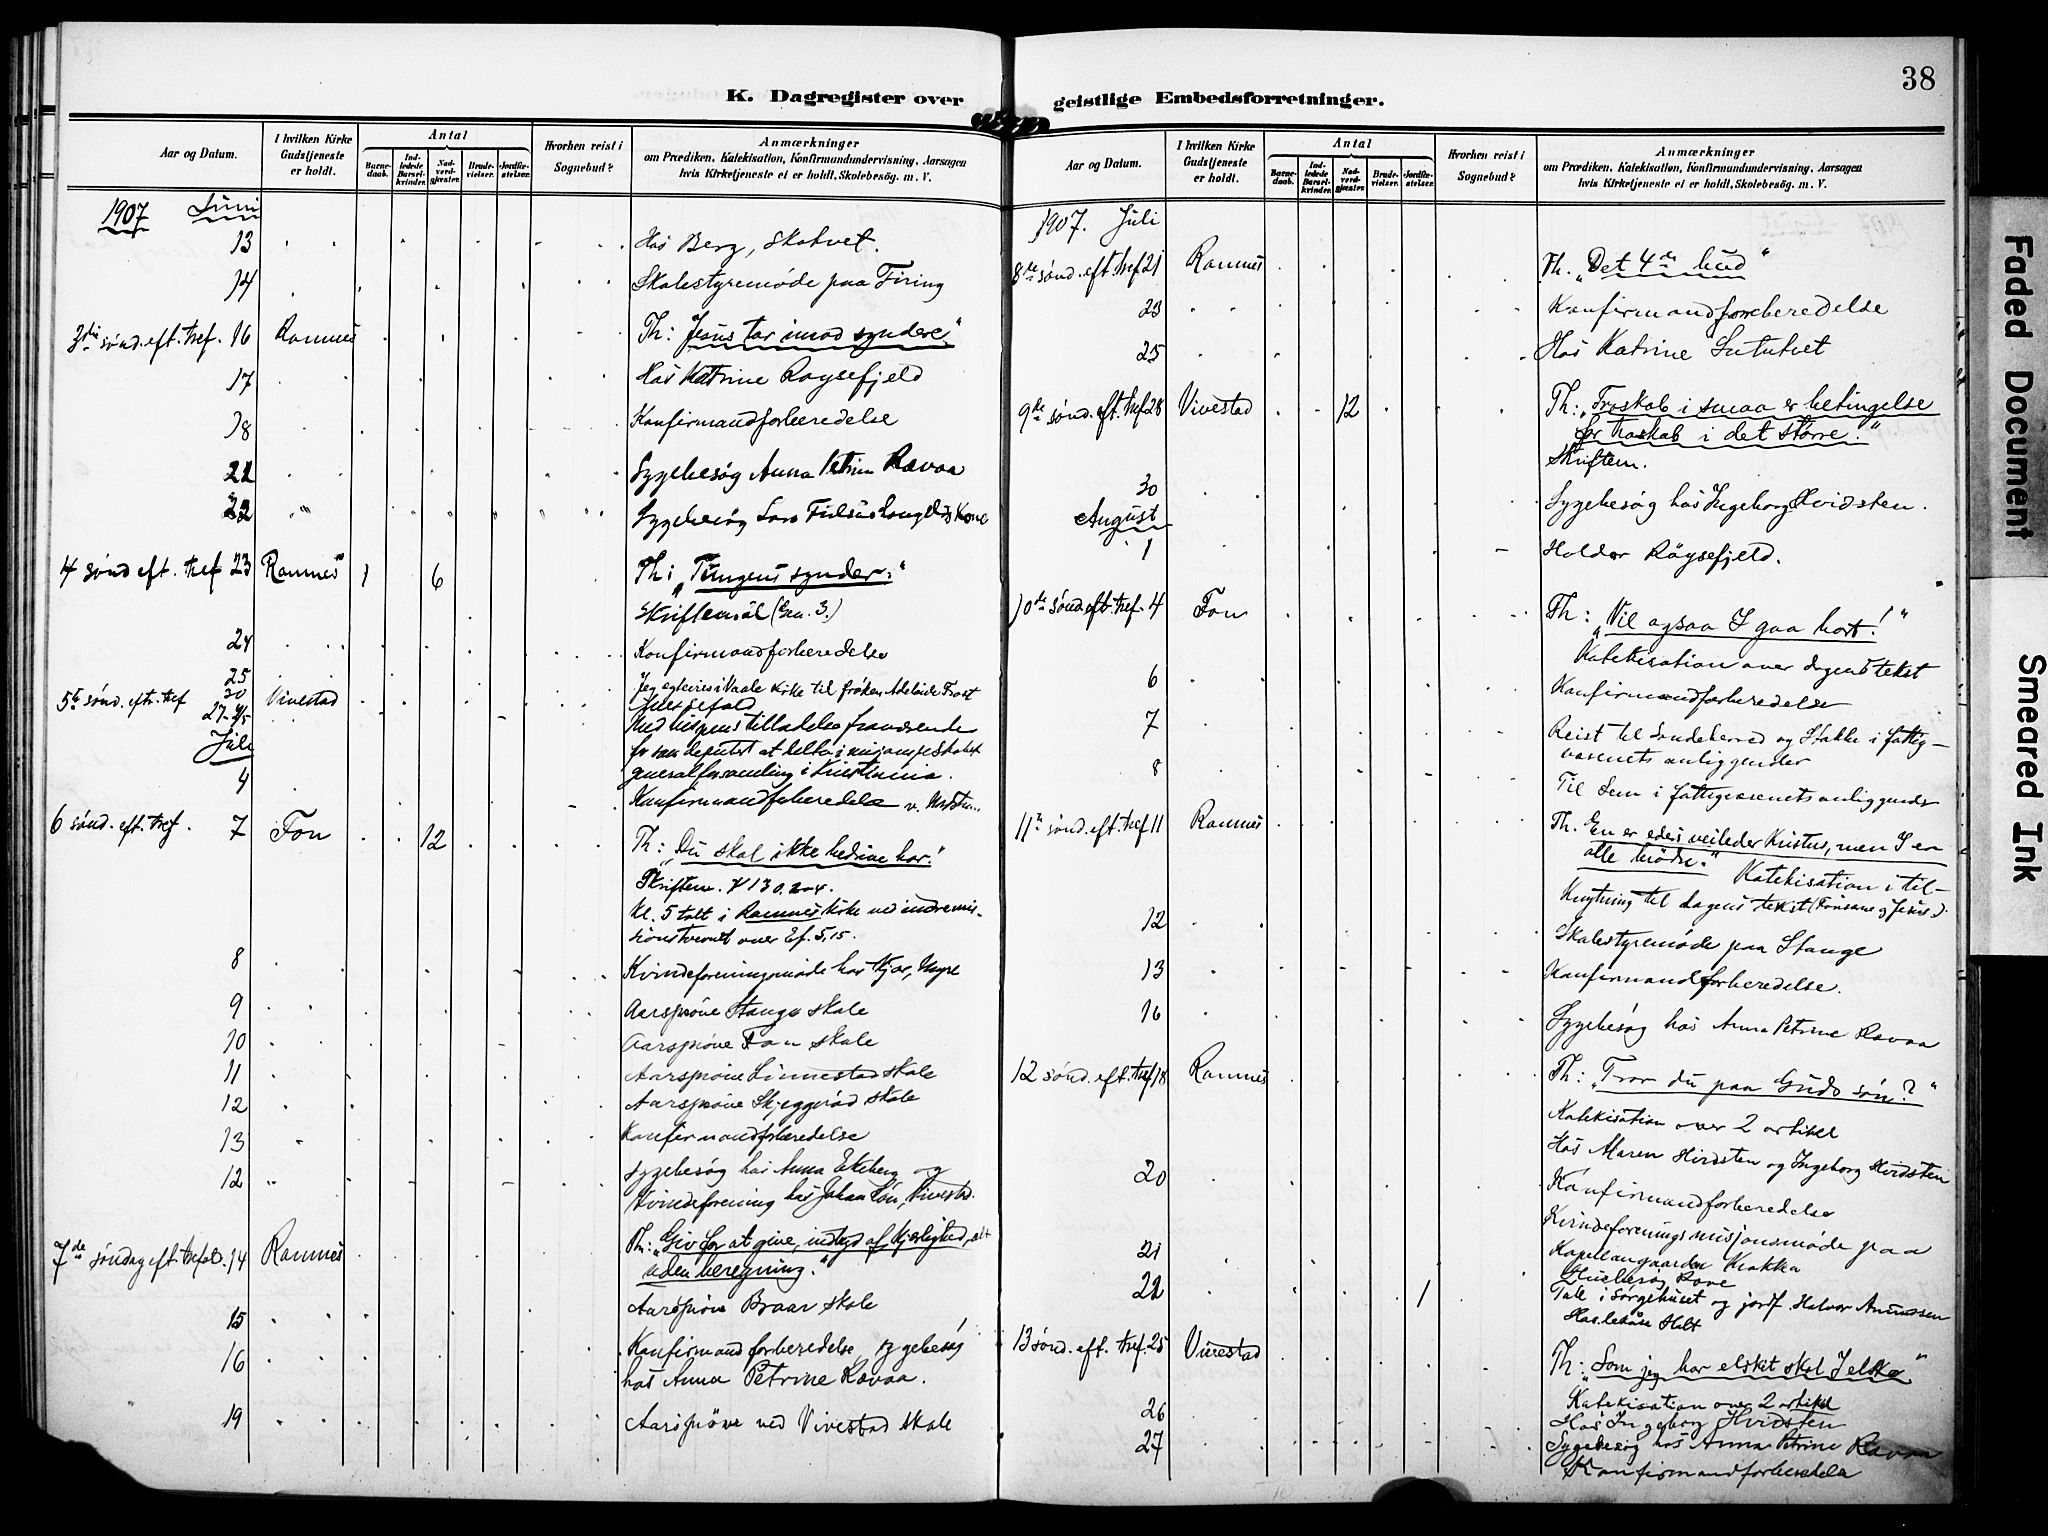 38
K. Dagregister over geistlige Embedsforretninger.
Aar og Datum.
I hvilken Kirke Gudstjeneste er holdt.
Antal
Barne-daab.
Ind-ledede Barsel-kvinder.
Nad-verd-gjester.
Brude-vielser.
Jordfæ-stelser.
Hvorhen reist i Sognebud?
Anmærkninger
om Prædiken, Katekisation, Konfirmundundervisning, Aarsagen
hvis Kirketjeneste ei er holdt, Skolebesøg. m. V.
1907 Juni
13 Hos Berg, Skotvet.
14 Skolestyremøde paa Firing
3die sønd. eft. tref. 16 Ramnes Th: "Jesus tar imod syndere."
17 Hos Katrine Røysefjeld
18 Konfirmandforberedelse
21 Sygebesøg Anna Petrine Ravaa
22 Sygebesøg
4 sønd eft. tref 23 Ramnes 1 6 Th: "Tungens synder."
Skriftemål (Gen. 3.)
24 Konfirmandforberedelse
25 Jeg egtevies i Vaale kirke til frøken Adelaide
5te sønd. eftr. tref 30 Vivestad
Med bispens tilladelse fraværende
for som deputert at delta i misjonsselskabet
generalforsamling i Kristiania.
Juli
4 Konfirmandforberedelse
6 sønd. eft. tref. 7 Fon 12 Th: "Du skal ikke bedrive hor."
Skriftem. ψ 130. 2-4.
Kl. 5 talt i Ramnes kirke ved indremis-
sionsstevnet over Ef. 5,15.
8 Kvindeforeningsmøde hos Kjær, Myre
9 Aarsprøve Stange skole
10 Aarsprøve Fon skole
11 Aarsprøve Linnestad skole
12 Aarsprøve Skjeggerød skole
13 Konfirmandforberedelse
12 Sygebesøg hos Anna Ekeberg og
Kvindeforening hos Johan Lön, Vivestad.
7de søndag eft. trefol. 14 Ramnes Th: "Giv for at give, indbyd af kjærlighed, alt
uden beregning."
15 Aarsprøve Braar skole
16 Konfirmandforberedelse, sygebesøg
hos Anna Petrine Ravaa.
19 Aarsprøve ved Vivestad skole
Aar og Datum.
I hvilken Kirke Gudstjeneste er holdt.
Antal
Barne-daab.
Ind-ledede Barsel-kvinder.
Nad-verd-gjester.
Brude-vielser.
Jordfæ-stelser.
Hvorhen reist i Sognebud?
Anmærkninger
om Prædiken, Katekisation, Konfirmundundervisning, Aarsagen
hvis Kirketjeneste ei er holdt, Skolebesøg. m. V.
1907. Juli
8de sønd. eft. tref 21 Ramnes Th. "Det 4de bud"
23 Konfirmandforberedelse
25 Hos Katrine
9de sønd. eft. tref 28 Vivestad 12 Th: "Troskab i smaa er betingelse
for troskab i det større."
Skriftem.
30 Sygebesøg hos Ingeborg Hvidsten.
August
1 Holder Röysefjeld.
10de sønd. eft. tref. 4 Fon Th: "Vil ogsaa I gaa bort!"
Katekisation over dagens tekst
6 Konfirmandforberedelse
7 Reist til Sandeherred og Stokke i fattig-
væsenets anliggender
8 Til Sem i fattigvæsenets anliggender
11te sønd. eft. tref 11 Ramnes Th. En er eders veileder Kristus, men I er
alle brødre." Katekisation i til-
knytning til dagens tekst
12 Skolestyremøde paa Stange
13 Konfirmandforberedelse.
16 Sygebesøg hos Anna Petrine Ravaa
12 sønd. eft. tref 18 Ramnes Th: "Tror du paa Guds søn?"
Katekisation over 2 artikel
Hos Maren Hvidsten og Ingeborg Hvidsten
20 Konfirmandforberedelse
Kvindeforenings misjonsmøde paa
21 Kapellangaarden
22 1 Tale i sørgehuset og jordf. Halvor Amundsen
Holt
13 sønd. eft. tref. 25 Vivestad Th: "Som jeg har elsket skal I elske"
Katekisation over 2 artikel
26 Hos Ingeborg Hvidsten
27 Sygebesøg hos Anna Petrine Ravaa
Konfirmandforberedelse
Faded Document
Smeared Ink